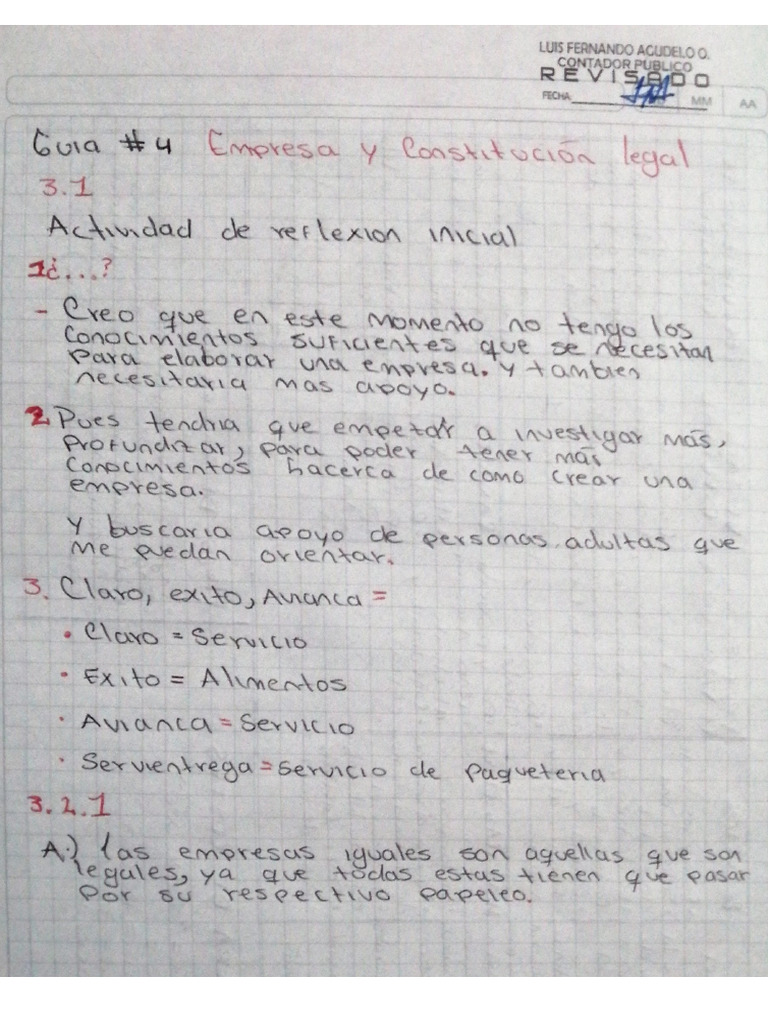 LUIS FERNANDO AGUDELO O.
CONTADOR PUBLICO
REVISADO
FECHA MM AA
Guia # 4 Empresa y Constitución legal
3.1
Actividad de reflexion inicial
1¿...?
- Creo que en este momento no tengo los
conocimientos suficientes que se necesitan
para elaborar una empresa. y tambien
necesitaria mas apoyo.
2 Pues tendria que empezar a investigar más,
profundizar, para poder tener más
conocimientos hacerca de como crear una
empresa.
Y buscaria apoyo de personas adultas que
me puedan orientar.
3. Claro, exito, Avianca =
• Claro = Servicio
• Exito = Alimentos
• Avianca = Servicio
• Servientrega = Servicio de paqueteria
3.2.1
A.) las empresas iguales son aquellas que son
legales, ya que todas estas tienen que pasar
por su respectivo papeleo.